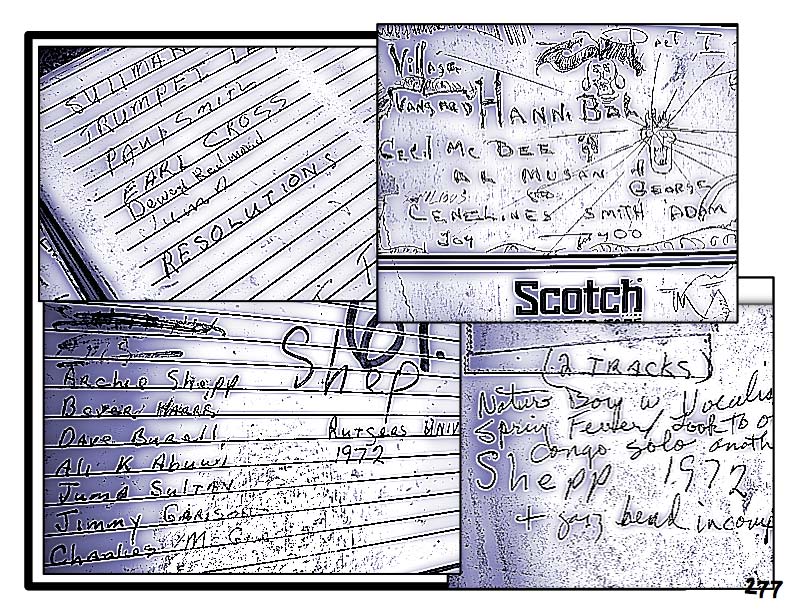 SULTMAN
TRUMPET
PAUL SMITH
EARL CROSS
Dewed Readmond
JUMA
RESOLUTIONS
Village
Vanguard HANNiBAL
PET I
CeCil Mc BEE
AL MUSAN
GEORGE
CENELINES SMITH ADAM
7400
Scotch
61.
Shep
Archie Shepp
Bever HARRS
Dave Burell
Ali K Abuwi
Juma SulTAN
Jimmy GARISON
Charles Mc G
Rutgers UNIV
1972
(2 TRACKS)
Nature Boy w Vocalis
Spring Fever/ Look To
Congo solo anoth
Shepp 1972
+ jazz bead incomp
277